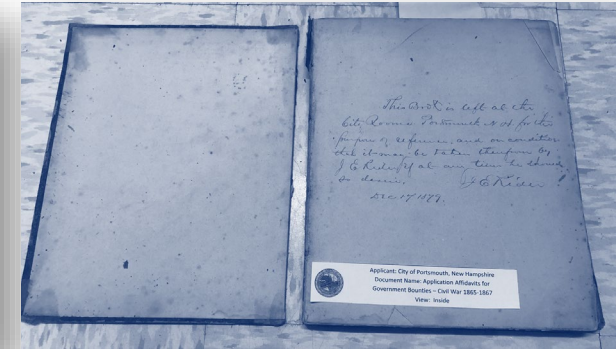 This Book is left at the
City Rooms Portsmouth N H for the
purpose of reference, and on condition
that it may be taken therefrom by
J E Rider, if at any time he should
so desire. J E Rider
Dec 17
Applicant: City of Portsmouth, New Hampshire
Document Name: Application Affidavits for
Government Bounties – Civil War 1865-1867
View: Inside